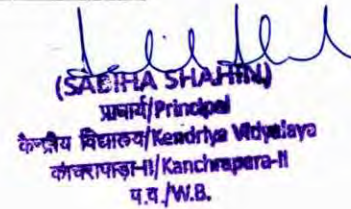 (SADIHA SHAHIN)
प्राचार्य/Principal
केन्द्रीय विद्यालय/Kendriya Vidyalaya
कांचरापाड़ा-II/Kanchrapara-II
प.व./W.B.